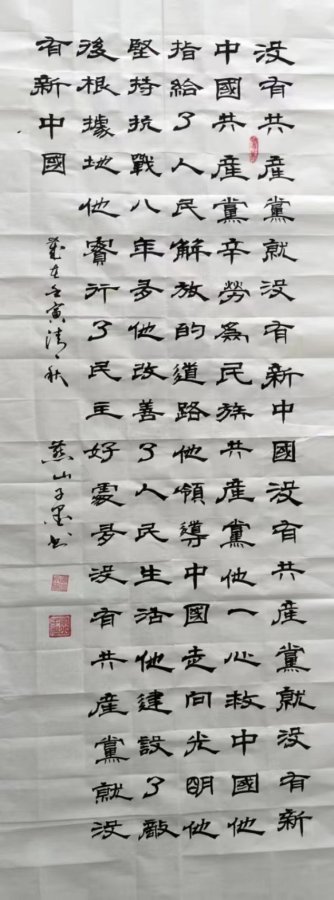 没有共產黨就没有新中國没有共產黨就没有新
中國共產黨辛勞為民族共產黨他一心救中國他
指給了人民解放的道路他領導中國走向光明他
堅持抗戰八年多他改善了人民生活他建設了敵
後根據地他實行了民主好處多没有共產黨就没
有新中國
歲在壬寅清秋 燕山子墨书